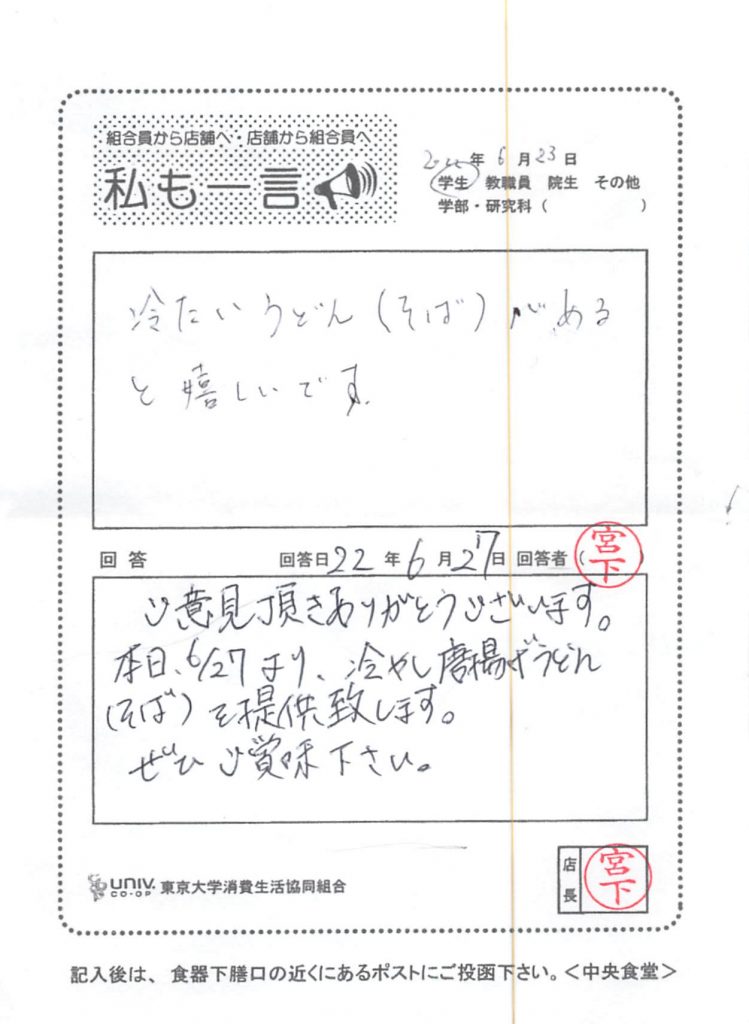 組合員から店舗へ・店舗から組合員へ
私も一言
2022年 6月23日
学生 教職員 院生 その他
学部・研究科( )
冷たいうどん(そば)がある
と嬉しいです.
回答 回答日22年6月27日 回答者(宮下)
ご意見頂きありがとうございます。
本日、6/27より、冷やし唐揚げうどん
(そば)を提供致します。
ぜひご賞味下さい。
UNIV. CO-OP 東京大学消費生活協同組合
店長 宮下
記入後は、食器下膳口の近くにあるポストにご投函下さい。<中央食堂>